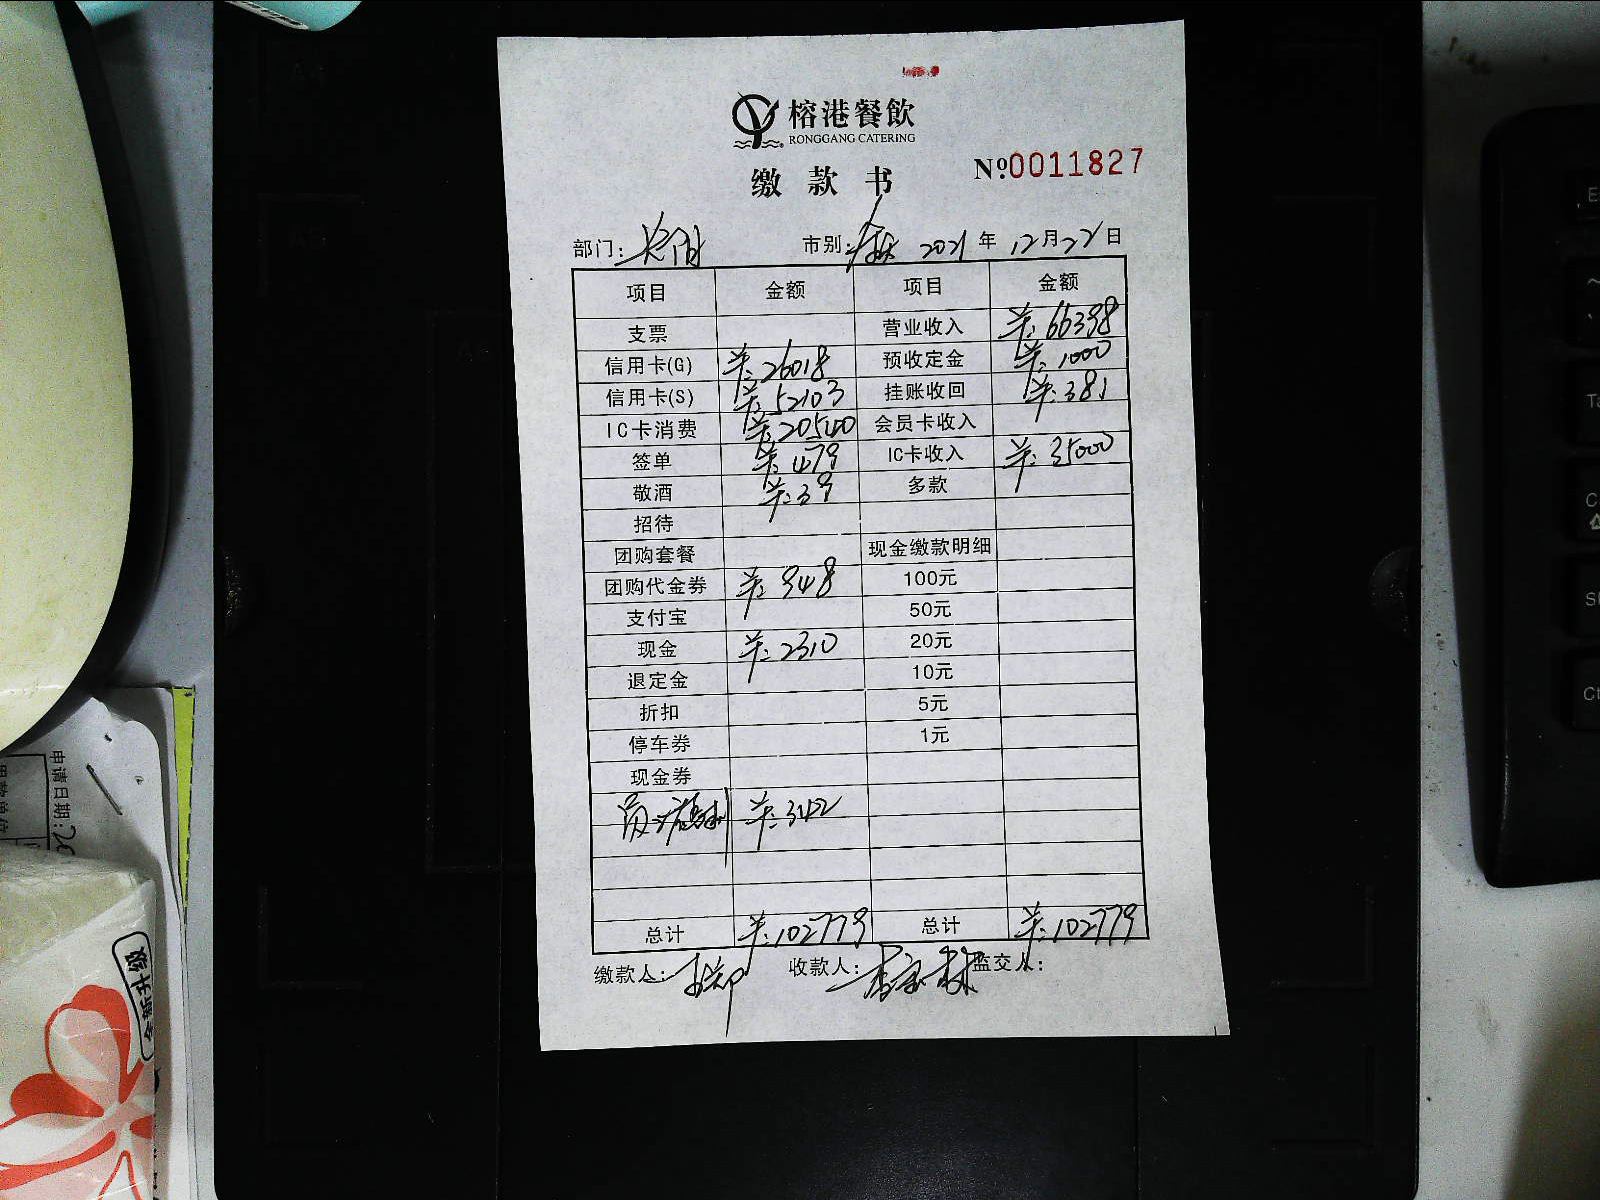 榕港餐飲
RONGGANG CATERING
缴款书
Nº0011827
部门: 市别: 2021年12月22日
项目 金额 项目 金额
支票 营业收入 ¥:66398
信用卡(G) ¥:26018 预收定金 ¥:1000
信用卡(S) ¥:52103 挂账收回 ¥:381
IC卡消费 ¥:20540 会员卡收入
签单 ¥:479 IC卡收入 ¥:35000
敬酒 ¥:39 多款
招待
团购套餐 现金缴款明细
团购代金券 ¥:948 100元
支付宝 50元
现金 ¥:2310 20元
退定金 10元
折扣 5元
停车券 1元
现金券
¥:342
总计 ¥:102779 总计 ¥:102779
缴款人: 收款人: 监交人:
申请日期:20
全新升级